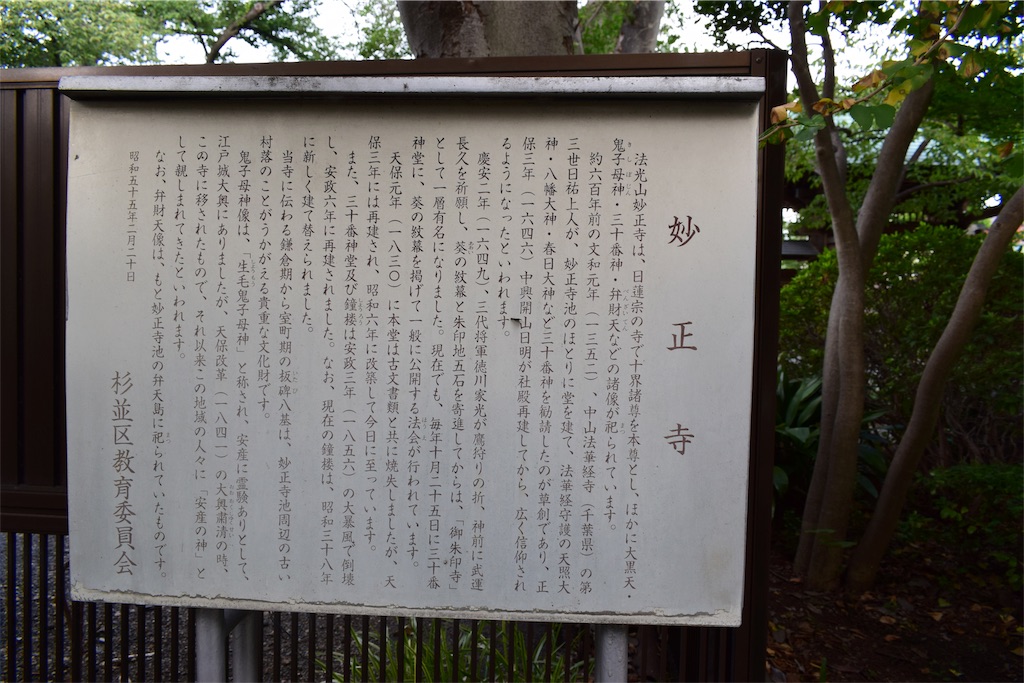 妙正寺
法光山妙正寺は、日蓮宗の寺で十界諸尊を本尊とし、ほかに大黒天・
鬼子母神・三十番神・弁財天などの諸像が祀られています。
約六百年前の文和元年（一三五二）、中山法華経寺（千葉県）の第
三世日祐上人が、妙正寺池のほとりに堂を建て、法華経守護の天照大
神・八幡大神・春日大神など三十番神を勧請したのが草創であり、正
保三年（一六四六）中興開山日明が社殿再建してから、広く信仰され
るようになったといわれます。
慶安二年（一六四九）、三代将軍徳川家光が鷹狩りの折、神前に武運
長久を祈願し、葵の紋幕と朱印地五石を寄進してからは、「御朱印寺」
として一層有名になりました。現在でも、毎年十月二十五日に三十番
神堂に、葵の紋幕を掲げて一般に公開する法会が行われています。
天保元年（一八三〇）に本堂は古文書類と共に焼失しましたが、天
保三年には再建され、昭和六年に改築して今日に至っています。
また、三十番神堂及び鐘楼は安政三年（一八五六）の大暴風で倒壊
し、安政六年に再建されました。なお、現在の鐘楼は、昭和三十八年
に新しく建て替えられました。
当寺に伝わる鎌倉期から室町期の板碑八基は、妙正寺池周辺の古い
村落のことがうかがえる貴重な文化財です。
鬼子母神像は、「生毛鬼子母神」と称され、安産に霊験ありとして、
江戸城大奥にありましたが、天保改革（一八四一）の大奥粛清の時、
この寺に移されたもので、それ以来この地域の人々に「安産の神」と
して親しまれてきたといわれます。
なお、弁財天像は、もと妙正寺池の弁天島に祀られていたものです。
昭和五十五年二月二十日
杉並区教育委員会